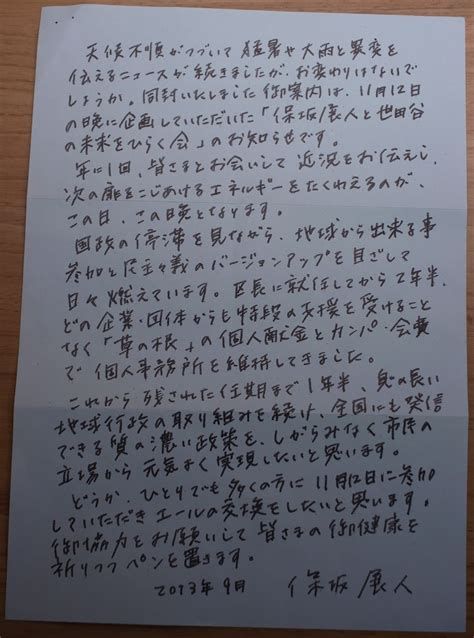 天候不順がつづいて猛暑や大雨と異変を
伝えるニュースが続きましたが、お変わりはないで
しょうか。同封いたしました御案内は、11月12日
の晩に企画していただいた「保坂展人と世田谷
の未来をひらく会」のお知らせです。
年に1回、皆さまとお会いして近況をお伝えし、
次の扉をこじあけるエネルギーをたくわえるのが、
この日、この晩となります。
国政の停滞を見ながら、地域から出来る事
参加と民主主義のバージョンアップを目ざして
日々燃えています。区長に就任してから2年半、
どの企業・団体からも特段の支援を受けること
なく「草の根」の個人献金とカンパ・会費
で個人事務所を維持してきました。
これから残された任期まで1年半、息の長い
地域行政の取り組みを続け、全国にも発信
できる質の濃い政策を、しがらみなく市民の
立場から元気よく実現したいと思います。
どうか、ひとりでも多くの方に11月12日に参加
していただきエールの交換をしたいと思います。
御協力をお願いして皆さまの御健康を
祈りつつペンを置きます。
2013年9月 保坂展人